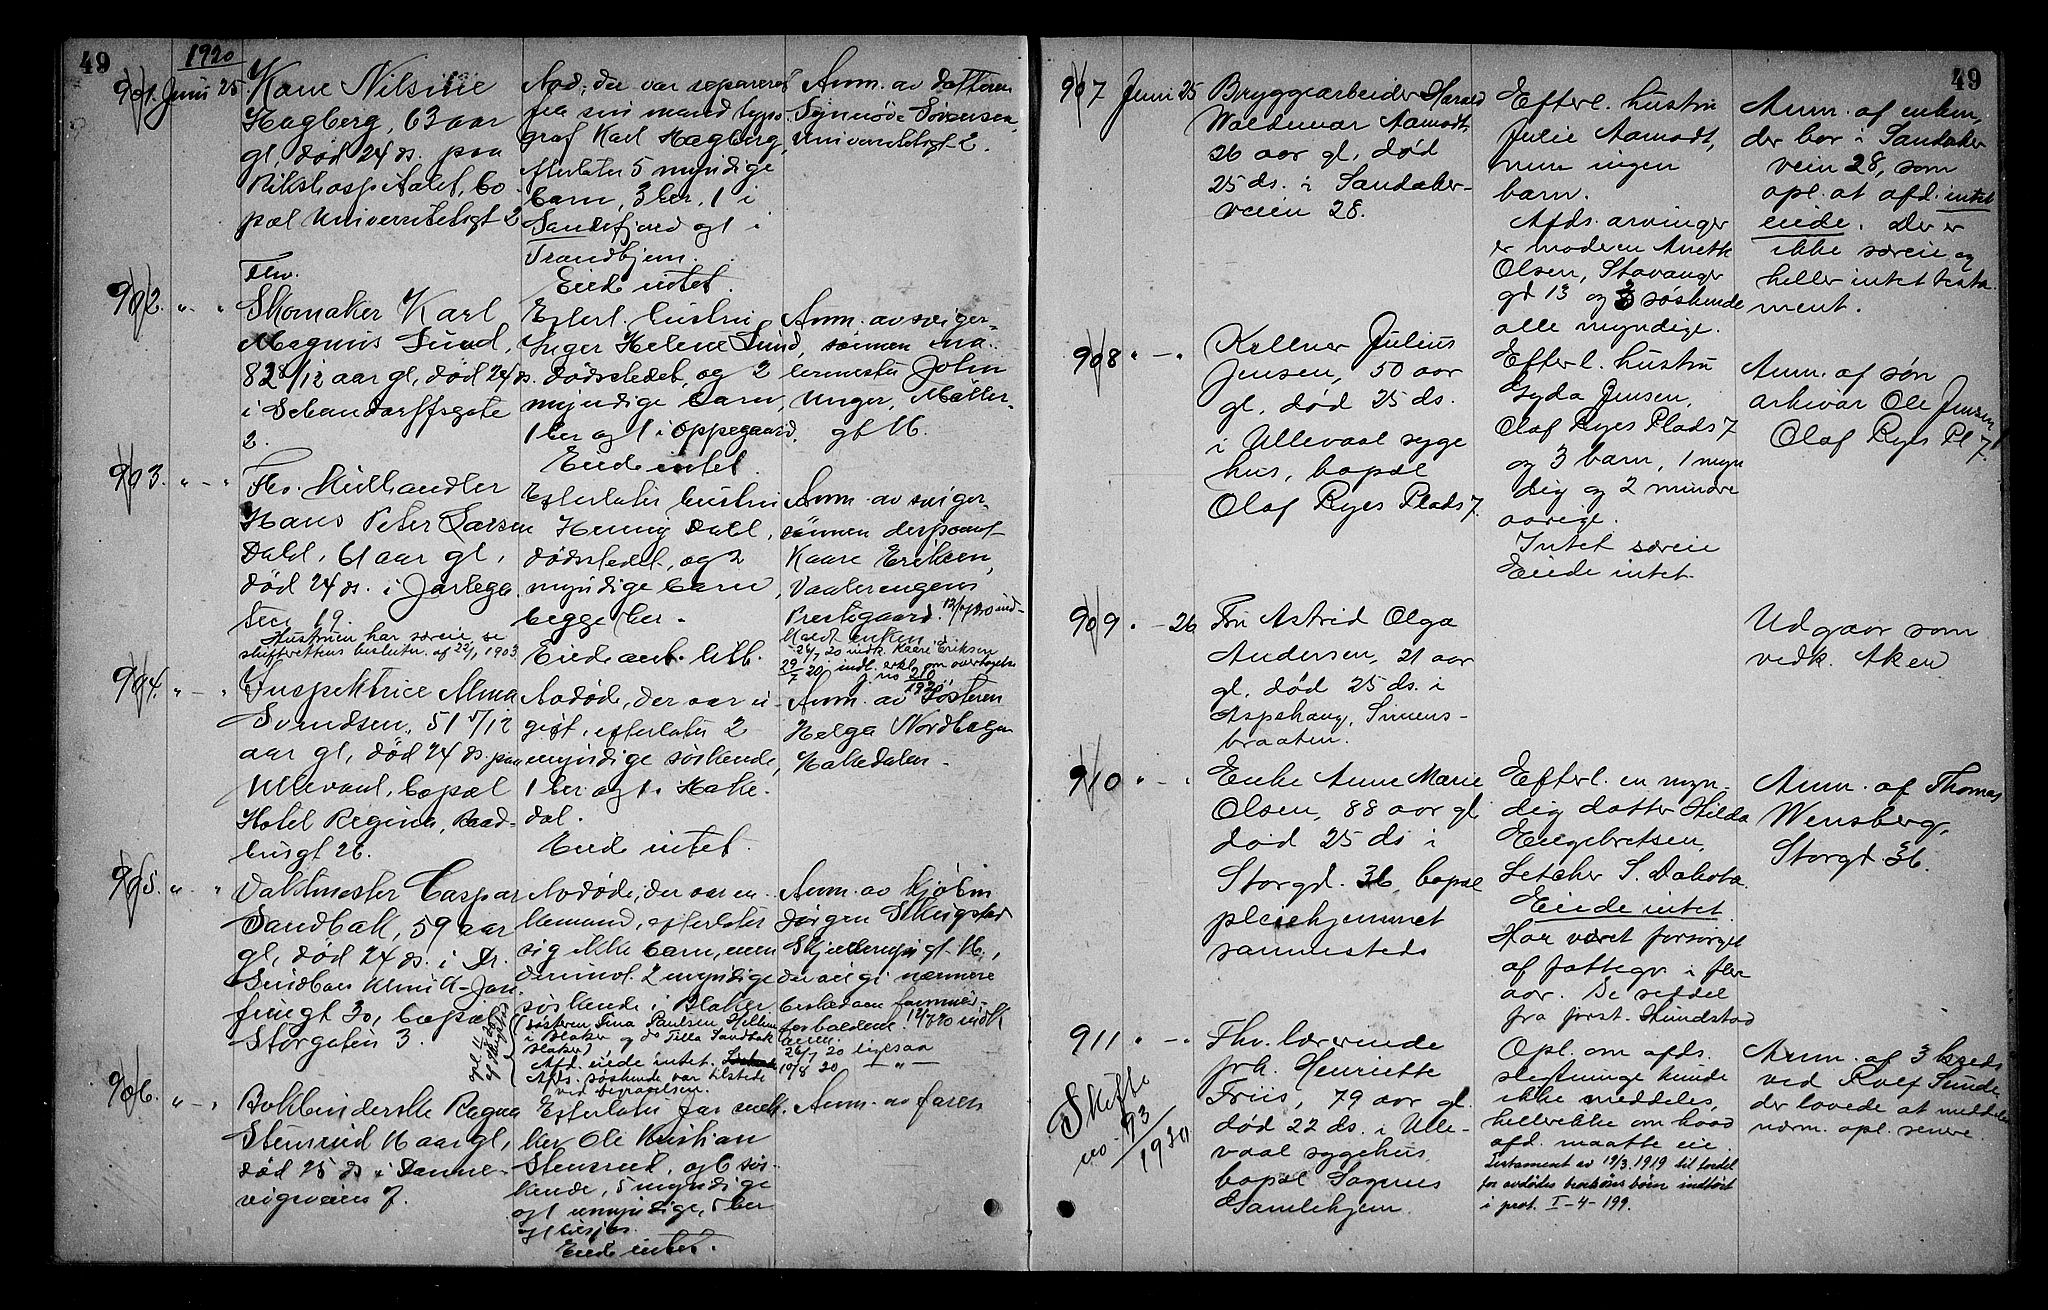 49
1920
901. Juni 25
Kaue Nilsine
Hagberg, 63 aar
gl, død 24 ds. paa
Rikshospitalet, bo-
pæl Universitetsgt 2
Avd, der var separeret
fra sin mand typo-
graf Karl Hagberg,
efterlater 5 myndige
barn, 3 her, 1 i
Sandefjord og 1 i
Trondhjem.
Eiede intet.
Anm. av datteren
Synnöve Sørensen,
Universitetsgt 2.
902. " - "
Fhv.
Skomaker Karl
Magnus Lund,
82 8/12 aar gl, død 24 ds.
i Schandorffsgate
2.
Efterl. hustru
Inger Helene Lund,
dødsstedet, og 2
myndige barn,
1 her og 1 i Oppegaard.
Eiede intet.
Anm. av sviger-
sønnen ma-
lermester John
Unger, Møller-
gt 16.
903. " - "
Fhv. Kulhandler
Hans Peter Larsen
Dahl, 61 aar gl,
død 24 ds. i Jarlega-
ten 19.
Hustruen har særeie se
skifterettens beslutn. af 22/1 1903.
Efterlater hustru
Henny Dahl,
dødsstedet, og 2
myndige barn,
begge her.
Eiede ant. litt.
Anm. av sviger-
sönnen disponent
Kaare Eriksen,
Vaalerengens
Prestegaard. 12/7 20 ind-
kaldt enken
26/7 20 indk. Kaare Eriksen
29/7 20 indl. erkl. om overtagelse
j. no 210/1920
904. " - "
Inspektrice Alma
Svendsen, 51 5/12
aar gl, død 24 ds. paa
Ullevaal, bopæl
Hotel Regina, Raad-
husgt 26.
Avdøde, der var u-
gift, efterlater 2
myndige søskende,
1 her og 1 i Hake-
dal.
Eiede intet.
Anm. av søsteren
Helga Nordhagen
Hakedalen.
905. " - "
Vaktmester Caspar
Sandbak, 59 aar
gl, død 24 ds. i Dr.
Sindbæk Klinik
30, bopæl
Storgaten 3.
Avdøde, der var en-
kemand, efterlater
sig ikke barn, men
derimot 2 myndige
søskende i Blaker
(søsteren Tina Paulsen
i Blaker og do Tilla Sandbak
Blaker)
Afd. eiede intet.
Afds. søskende var tilstede
ved begravelsen.
Anm. av kjøbm
Jørgen Skugstad
der vil gi nærmere
beskeden om formues-
forholdene. 12/7 20 indk
anm.
26/7 20 ligesaa
10/8 20 — " —
906. " - "
Bokbinderske Ragna
Stensrud 14 aar gl,
død 25 ds i Danne-
vigsveien 7.
Efterlater far snek-
ker Ole Kristian
Stensrud, og 6 søs-
kende, 5 myndige
og 1 umyndige, 5 her
og 1 tilsjøs.
Eiede intet.
Anm. av faren
49
907 Juni 25
Bryggearbeider Harald
Waldemar Aamodt,
26 aar gl, død
25 ds. i Sandaker-
veien 28.
Efterl. hustru
Julie Aamodt,
men ingen
barn.
Afds. arvinger
er moderen Anette
Olsen, Stavanger
gd 13 og 3 søskende
alle myndige.
Anm. af enken,
der bor i Sandaker
veien 28, som
opl. at afd. intet
eiede. Der er
ikke særeie og
heller intet testa-
ment.
908 " — "
Kellner Julius
Jensen, 50 aar
gl, død 25 ds.
i Ullevaal syge
hus, bopæl
Olaf Ryes Plads 7.
Efterl. hustru
Gyda Jensen,
Olaf Ryes Plads 7
og 3 barn, 1 myn
dig og 2 mindre
aarige.
Intet særeie
Eiede intet
Anm. af søn
arkivar Ole Jensen
Olaf Ryes Pl 7.
909 " — 26
Fru Astrid Olga
Andersen, 21 aar
gl, død 25 ds. i
Aspehaug, Simens-
braaten.
Udgaar som
vedk. Aker
910 " — "
Enke Anne Marie
Olsen, 88 aar gl
død 25 ds i
Storgd. 36, bopæl
pleiehjemmet
sammesteds
Efterl. en myn
dig datter Hilda
Engebretsen,
Letcher S. Dakota.
Eiede intet.
Har været forsørget
af fattigv. i flere
aar. Se seddel
fra forst. Hundstad
Anm. af Thomas
Wensberg,
Storgd 36.
911 " — "
Skifte
no 93/1920
Fhv. lærerinde
frk. Henriette
Friis, 79 aar gl.
død 22 ds. i Ulle-
vaal sygehus,
bopæl Sagenes
Gamlehjem.
Opl. om afds.
slegtninge kunde
ikke meddeles,
hellerikke om hvad
afd. maatte eie
Testament av 19/3.1919 til fordel
for avdødes brorsöns börn indført
i prot. I-4-199.
Anm. af 3 kreds
ved Rolf Sunde
der lovede at meddele
nærm. opl. senere.